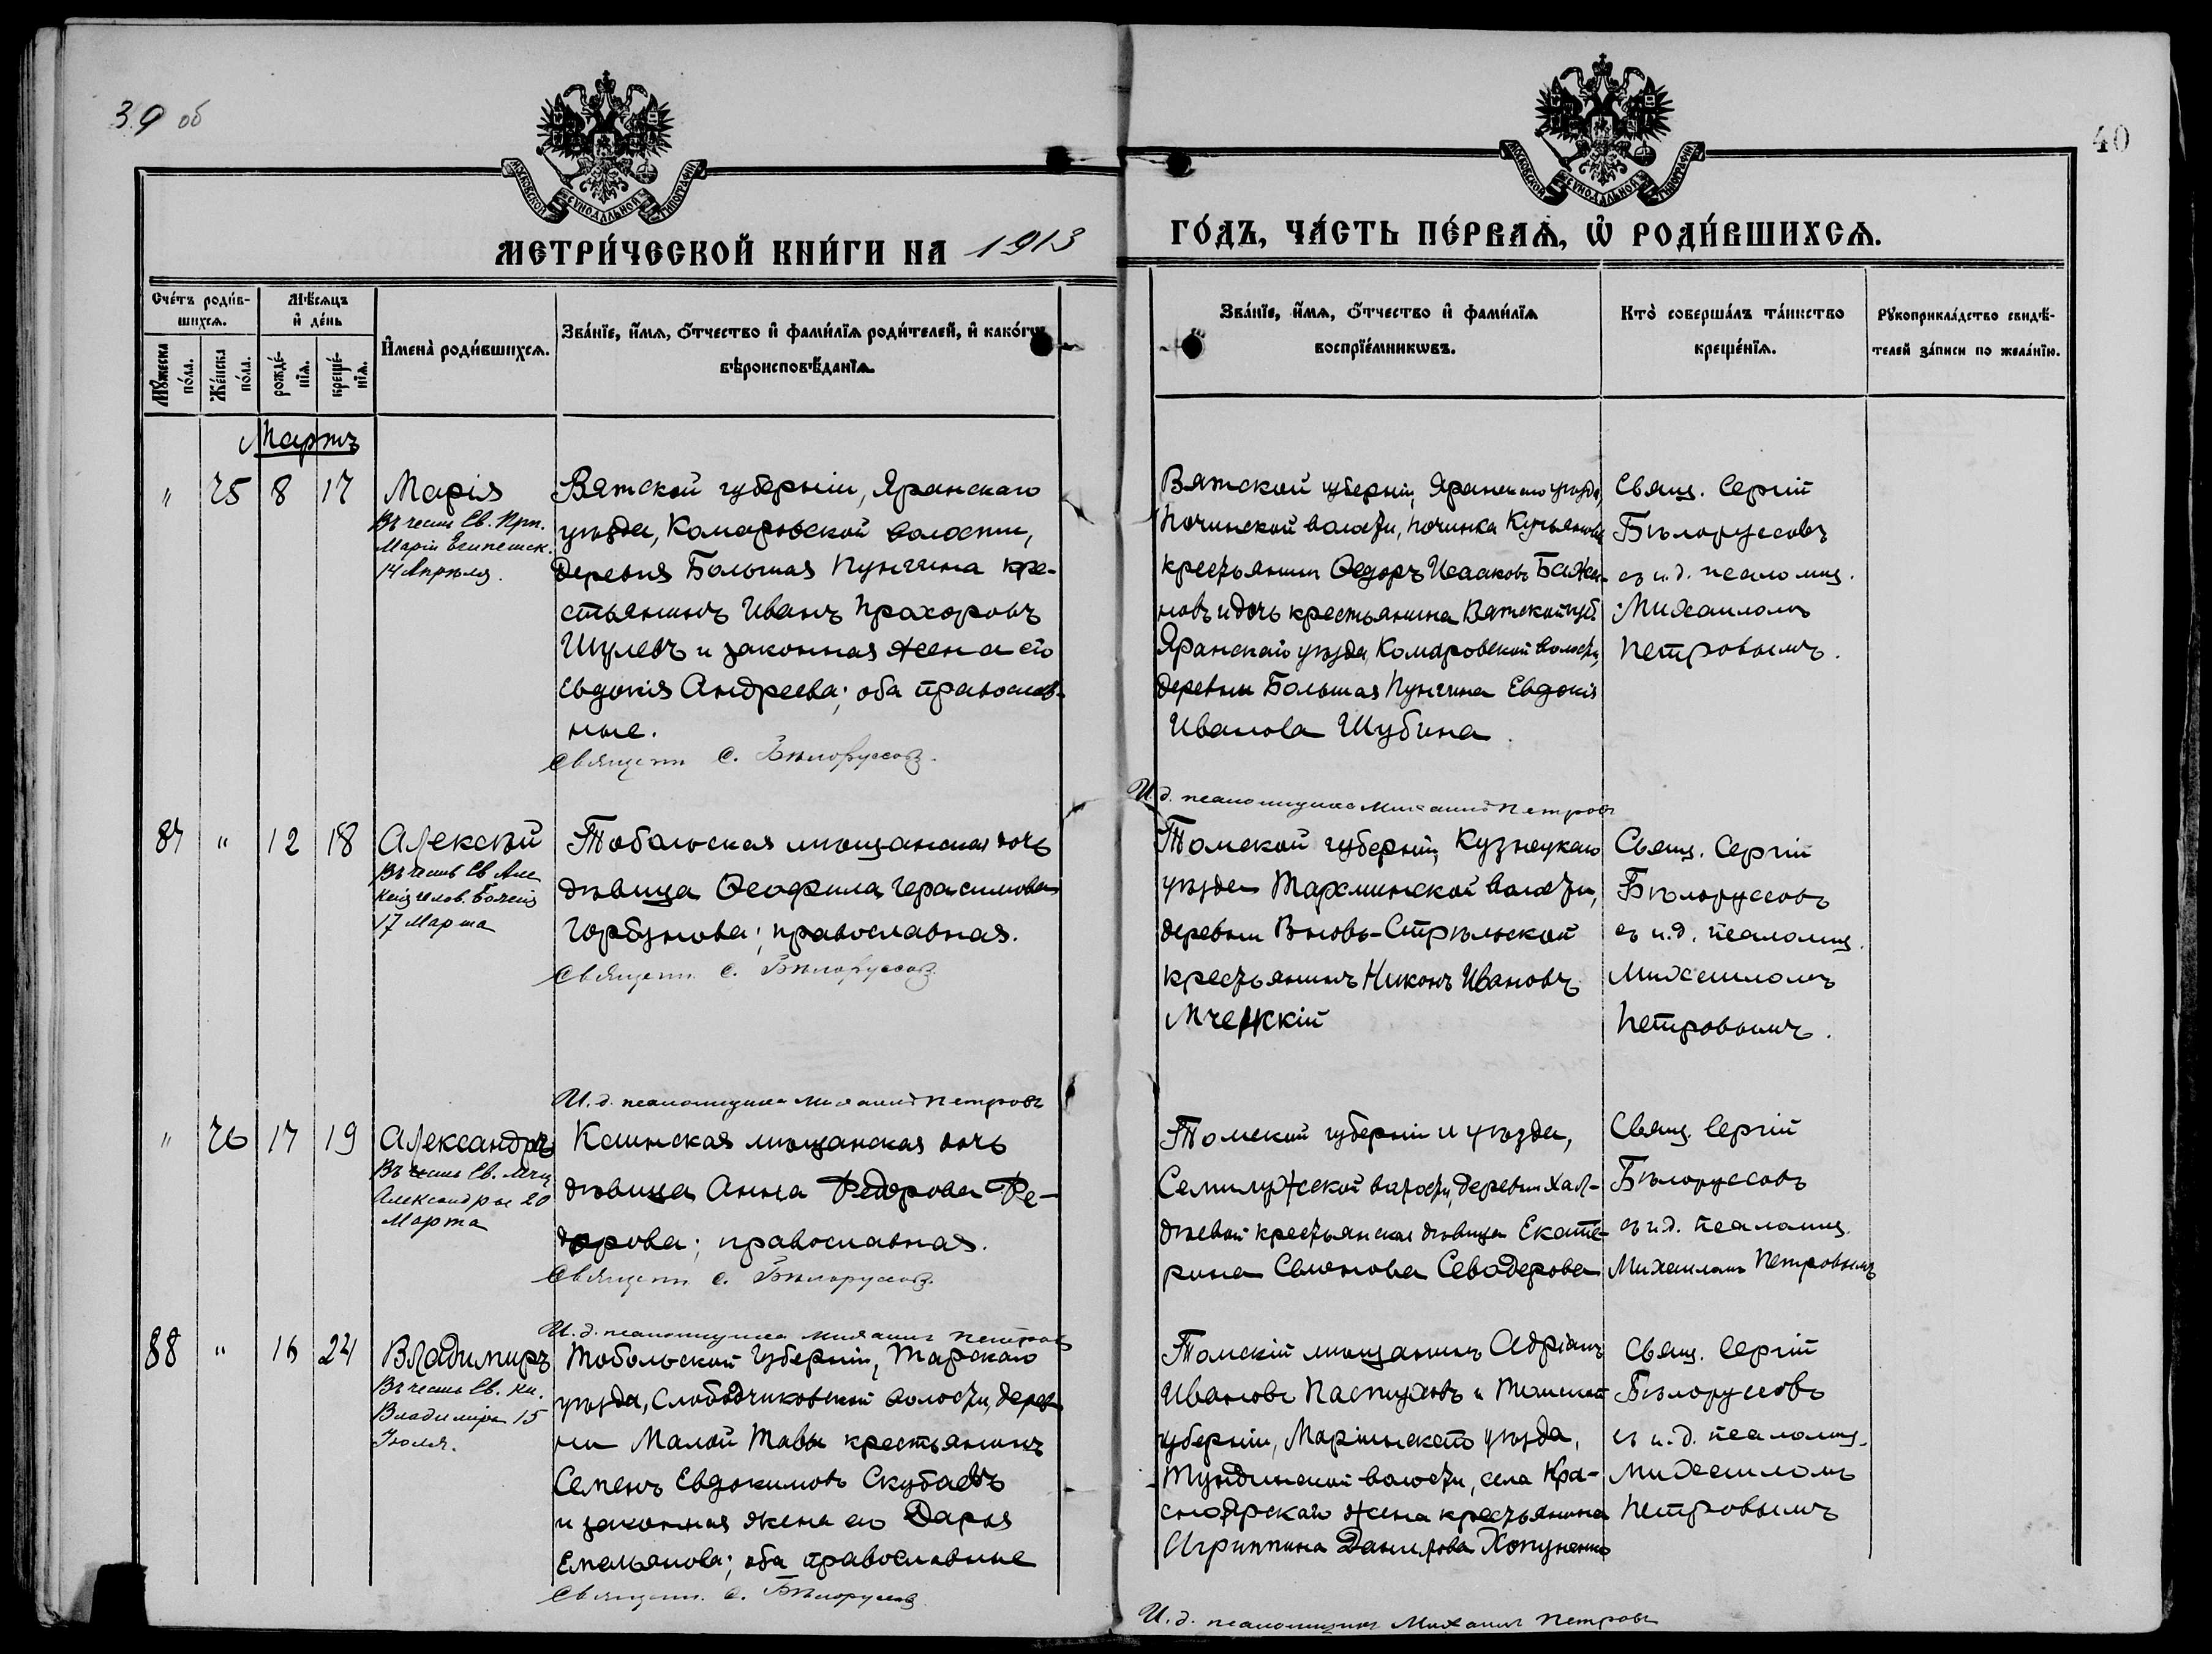 39 об
40
МОСКОВСКОЙ СѴНОДАЛЬНОЙ ТИПОГРАФІИ
МОСКОВСКОЙ СѴНОДАЛЬНОЙ ТИПОГРАФІИ
МЕТРИ́ЧЕСКОЙ КНИ́ГИ НА 1913
ГО́ДЪ, ЧА́СТЬ ПЕ́РВАѦ, Ѡ҆ РОДИ́ВШИХСѦ.
Сче́тъ роди́в-
шихсѧ.
Мꙋ́жеска по́ла.
Же́нска по́ла.
Мѣ́сѧцъ
и҆ де́нь
рожде́-
нїѧ.
креще́-
нїѧ.
И҆мена̀ роди́вшихсѧ.
Зва́нїе, и҆́мѧ, ѻ҆́тчество и҆ фами́лїѧ роди́телей, и҆ како́гѡ
вѣроисповѣ́данїѧ.
Зва́нїе, и҆́мѧ, ѻ҆́тчество и҆ фами́лїѧ
воспрїе́мникѡвъ.
Кто̀ соверша́лъ та́инство
креще́нїѧ.
Рꙋкоприкла́дство свидѣ́-
телей за́писи по жела́нїю.
Мартъ
" 25 8 17
Марія
Въ честь Св. Прп.
Маріи Египетск.
14 Апрѣля.
Вятской губерніи, Яранскаго
уѣзда, Комаровской волости,
деревня Большая Пунгина кре-
стьянинъ Иванъ Прохоровъ
Шулевъ и законная жена его
Евдокія Андреева; оба православ-
ные.
Священн С. Бѣлоруссовъ.
Вятской губерніи, Яранскаго уѣзда,
Починской волости, починка
крестьянинъ Ѳедоръ Исааковъ Бажи-
новъ и дочь крестьянина Вятской губ.
Яранскаго уѣзда, Комаровской волости,
деревни Большая Пунгина Евдокія
Иванова Шубина.
И. д. псаломщика Михаилъ Петровъ
Свящ. Сергій
Бѣлоруссовъ
съ и. д. псаломщ.
Михаиломъ
Петровымъ.
87 " 12 18
Алексѣй
Въ честь Св Але
ксія челов. Божія
17 Марта
Тобольская мѣщанская дочь
дѣвица Ѳеофила Герасимова
Горбунова; православная.
Священн. С. Бѣлоруссовъ.
И. д. псаломщика Михаилъ Петровъ
Томской губерніи, Кузнецкаго
уѣзда Тарсминской волости,
деревни Вновь-Стрѣльской
крестьянинъ Никонъ Ивановъ
Свящ. Сергій
Бѣлоруссовъ
съ и. д. псаломщ.
Михаиломъ
Петровымъ.
" 26 17 19
Александра
Въ честь Св. мчц
Александры 20
Марта
Каинская мѣщанская дочь
дѣвица Анна Федорова Фе-
дорова; православная.
Священн. С. Бѣлоруссовъ.
И. д. псаломщика Михаилъ Петровъ
Томской губерніи и уѣзда,
Семилужской волости, деревни Хал-
дѣевой крестьянская дѣвица Екате-
рина Семенова Севодерова
Свящ. Сергій
Бѣлоруссовъ
съ и. д. псаломщ.
Михаиломъ Петровымъ
88 " 16 24
Владимиръ
Въ честь Св. кн.
Владиміра 15
Іюля.
Тобольской губерніи, Тарскаго
уѣзда, Слободчиковской волости, дерев-
ни Малой Тавы крестьянинъ
Семенъ Евдокимовъ Скубаевъ
и законная жена его Дарья
Емельянова; оба православные
Священн. С. Бѣлоруссовъ
Томскій мѣщанинъ Адріанъ
Ивановъ Пастуховъ и Томской
губерніи, Маріинскаго уѣзда,
Тундинской волости, села Кра-
сноярскаго жена крестьянина
Агриппина Данилова
И. д. псаломщика Михаилъ Петровъ
Свящ. Сергій
Бѣлоруссовъ
съ и. д. псаломщ.
Михаиломъ
Петровымъ